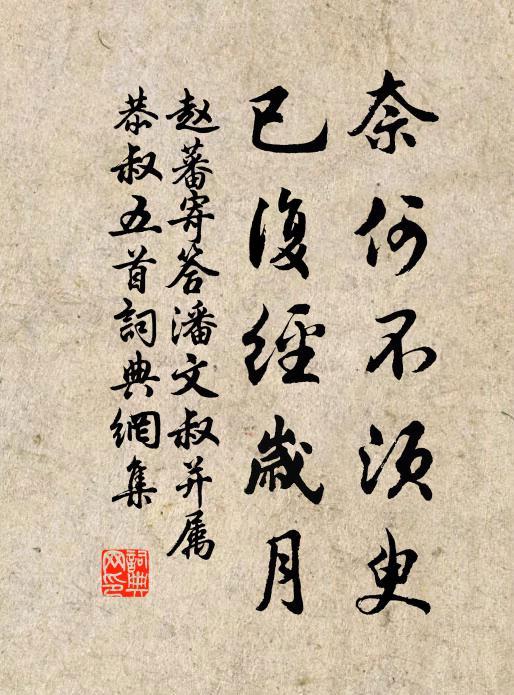 奈何不須臾
已復經歲月
赵蕃寄答潘文叔并属
恭叔五首詞典網集
詞典网印